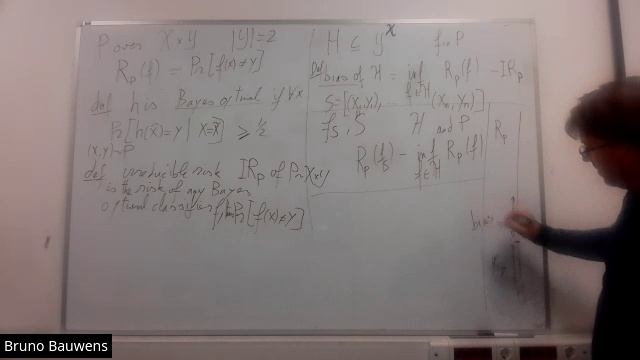 P over X×Y |Y|=2
R_P(f) = Pr[f(x)≠Y]
def h is Bayes optimal if ∀x
Pr[h(x)=Y | X=x] ≥ 1/2
(X,Y)~P
def irreducible risk IR_P of P on X×Y
is the risk of any Bayes
optimal classifier Pr[f(x)≠Y]
H ⊆ Y^X f P
Def bias of H = inf R_P(f) - IR_P
f∈H
S=[(x_1,y_1), ... (x_n,y_n)]
f_S, S H and P
R_P(f_S) - inf R_P(f)
f∈H
R_P
bias
Bruno Bauwens